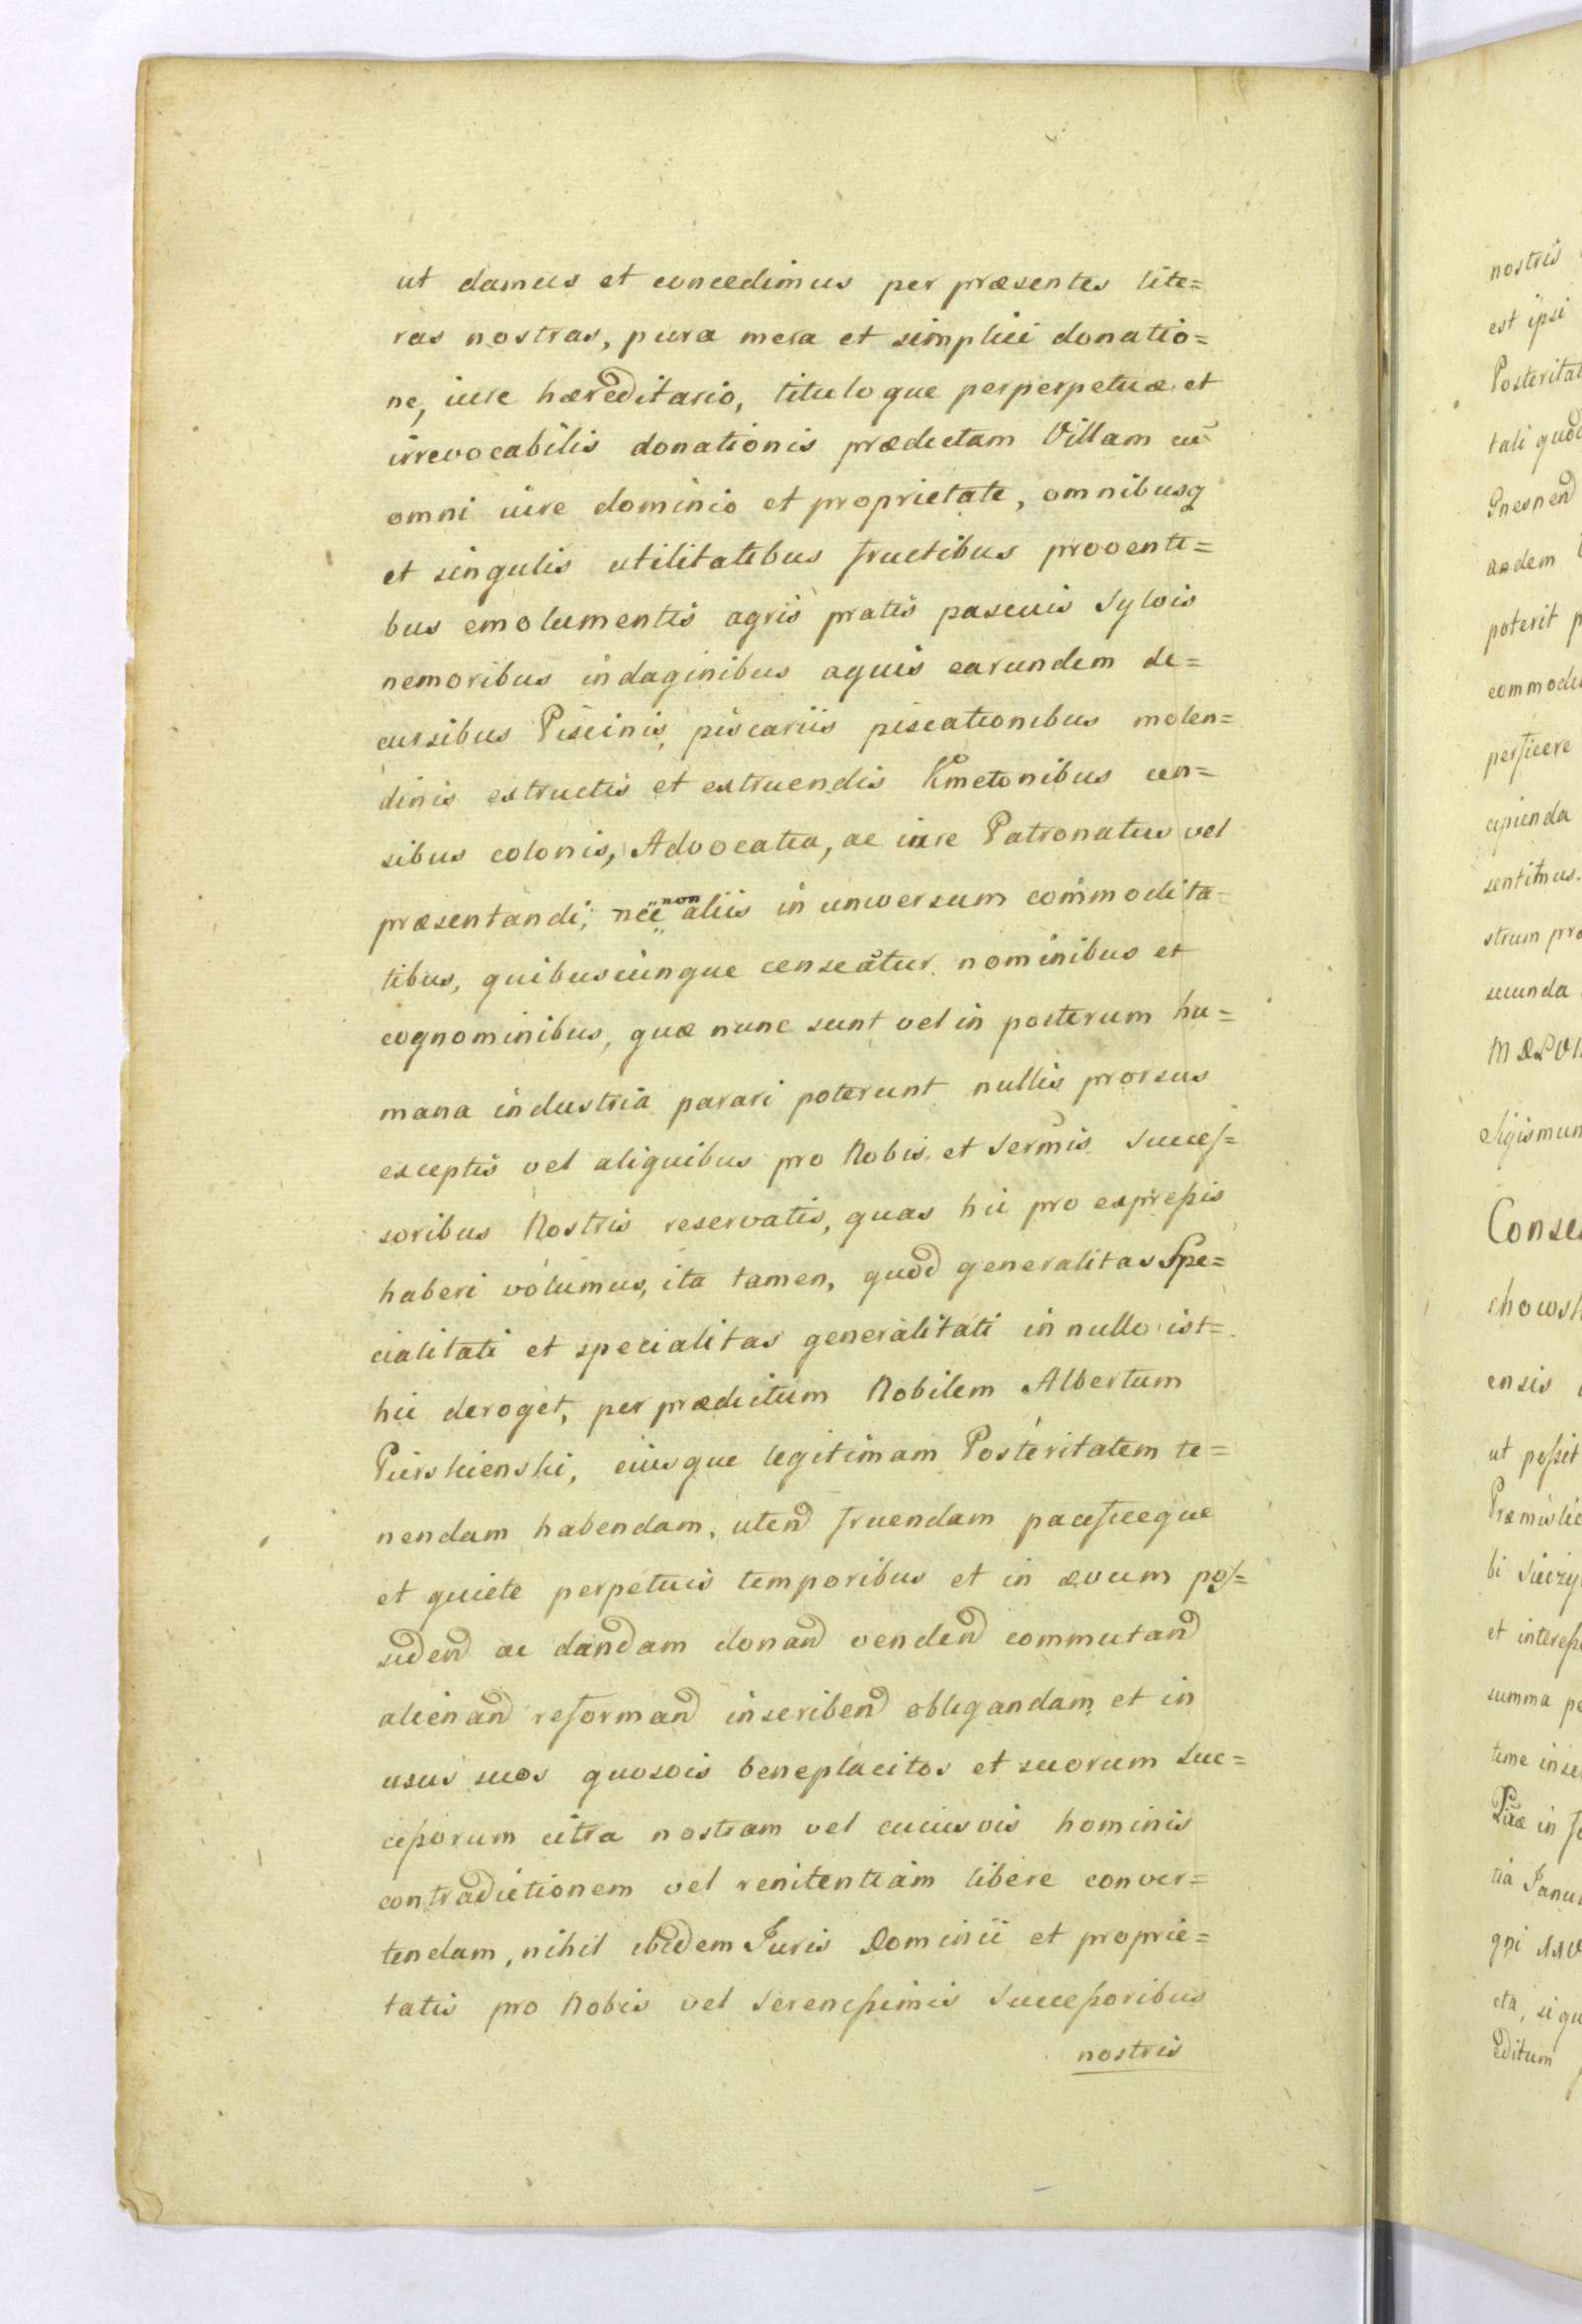 ut damus et concedimus per præsentes lite=
ras nostras, pura mera et simplici donatio=
ne, iure hæreditario, tituloque perperpetuæ et
irrevocabilis donationis prædictam Villam cũ
omni iure dominio et proprietate, omnibusq
et singulis utilitatibus fructibus proventi=
bus emolumentis agris pratis pascuis Sylvis
nemoribus indaginibus aquis earundem de=
cursibus Piscinis, piscariis piscationibus molen=
dinis extructis et extruendis Kmetonibus cen=
sibus colonis, Advocatia, ac iure Patronatus vel
præsentandi; nec non aliis in universum commodita=
tibus, quibuscunque censeatur nominibus et
cognominibus, quæ nunc sunt vel in posterum hu=
mana industria parari poterunt nullis prorsus
exceptis vel aliquibus pro Nobis et Sermis Succes=
soribus Nostris reservatis, quas hic pro expressis
haberi volumus, ita tamen, quod generalitas Spe=
cialitati et specialitas generalitati in nullo ist=
hic deroget, per prædictum Nobilem Albertum
Pierskienski, eiusque legitimam Posteritatem te=
nendam habendam, utend fruendam pacificeque
et quiete perpetuis temporibus et in ævum pos=
sidend ac dandam donand vendend commutand
alienand reformand inscribend obligandam et in
usus suos quosvis beneplacitos et suorum Suc=
cessorum citra nostram vel cuiusvis hominis
contradictionem vel renitentiam libere conver=
tendam, nihil ibidem Juris Dominii et proprie=
tatis pro Nobis vel Serenissimis Successoribus
nostris
nostris
est ipsi
Posteritat
tali quod
Gnesnend
andem
poterit p
commodi
perficere
cipienda
sentimus.
strum pro
secunda
Sigismun
Conse
chowsk
ensis
ut possit
et interess
summa pe
gni
cta, si qu
Editum